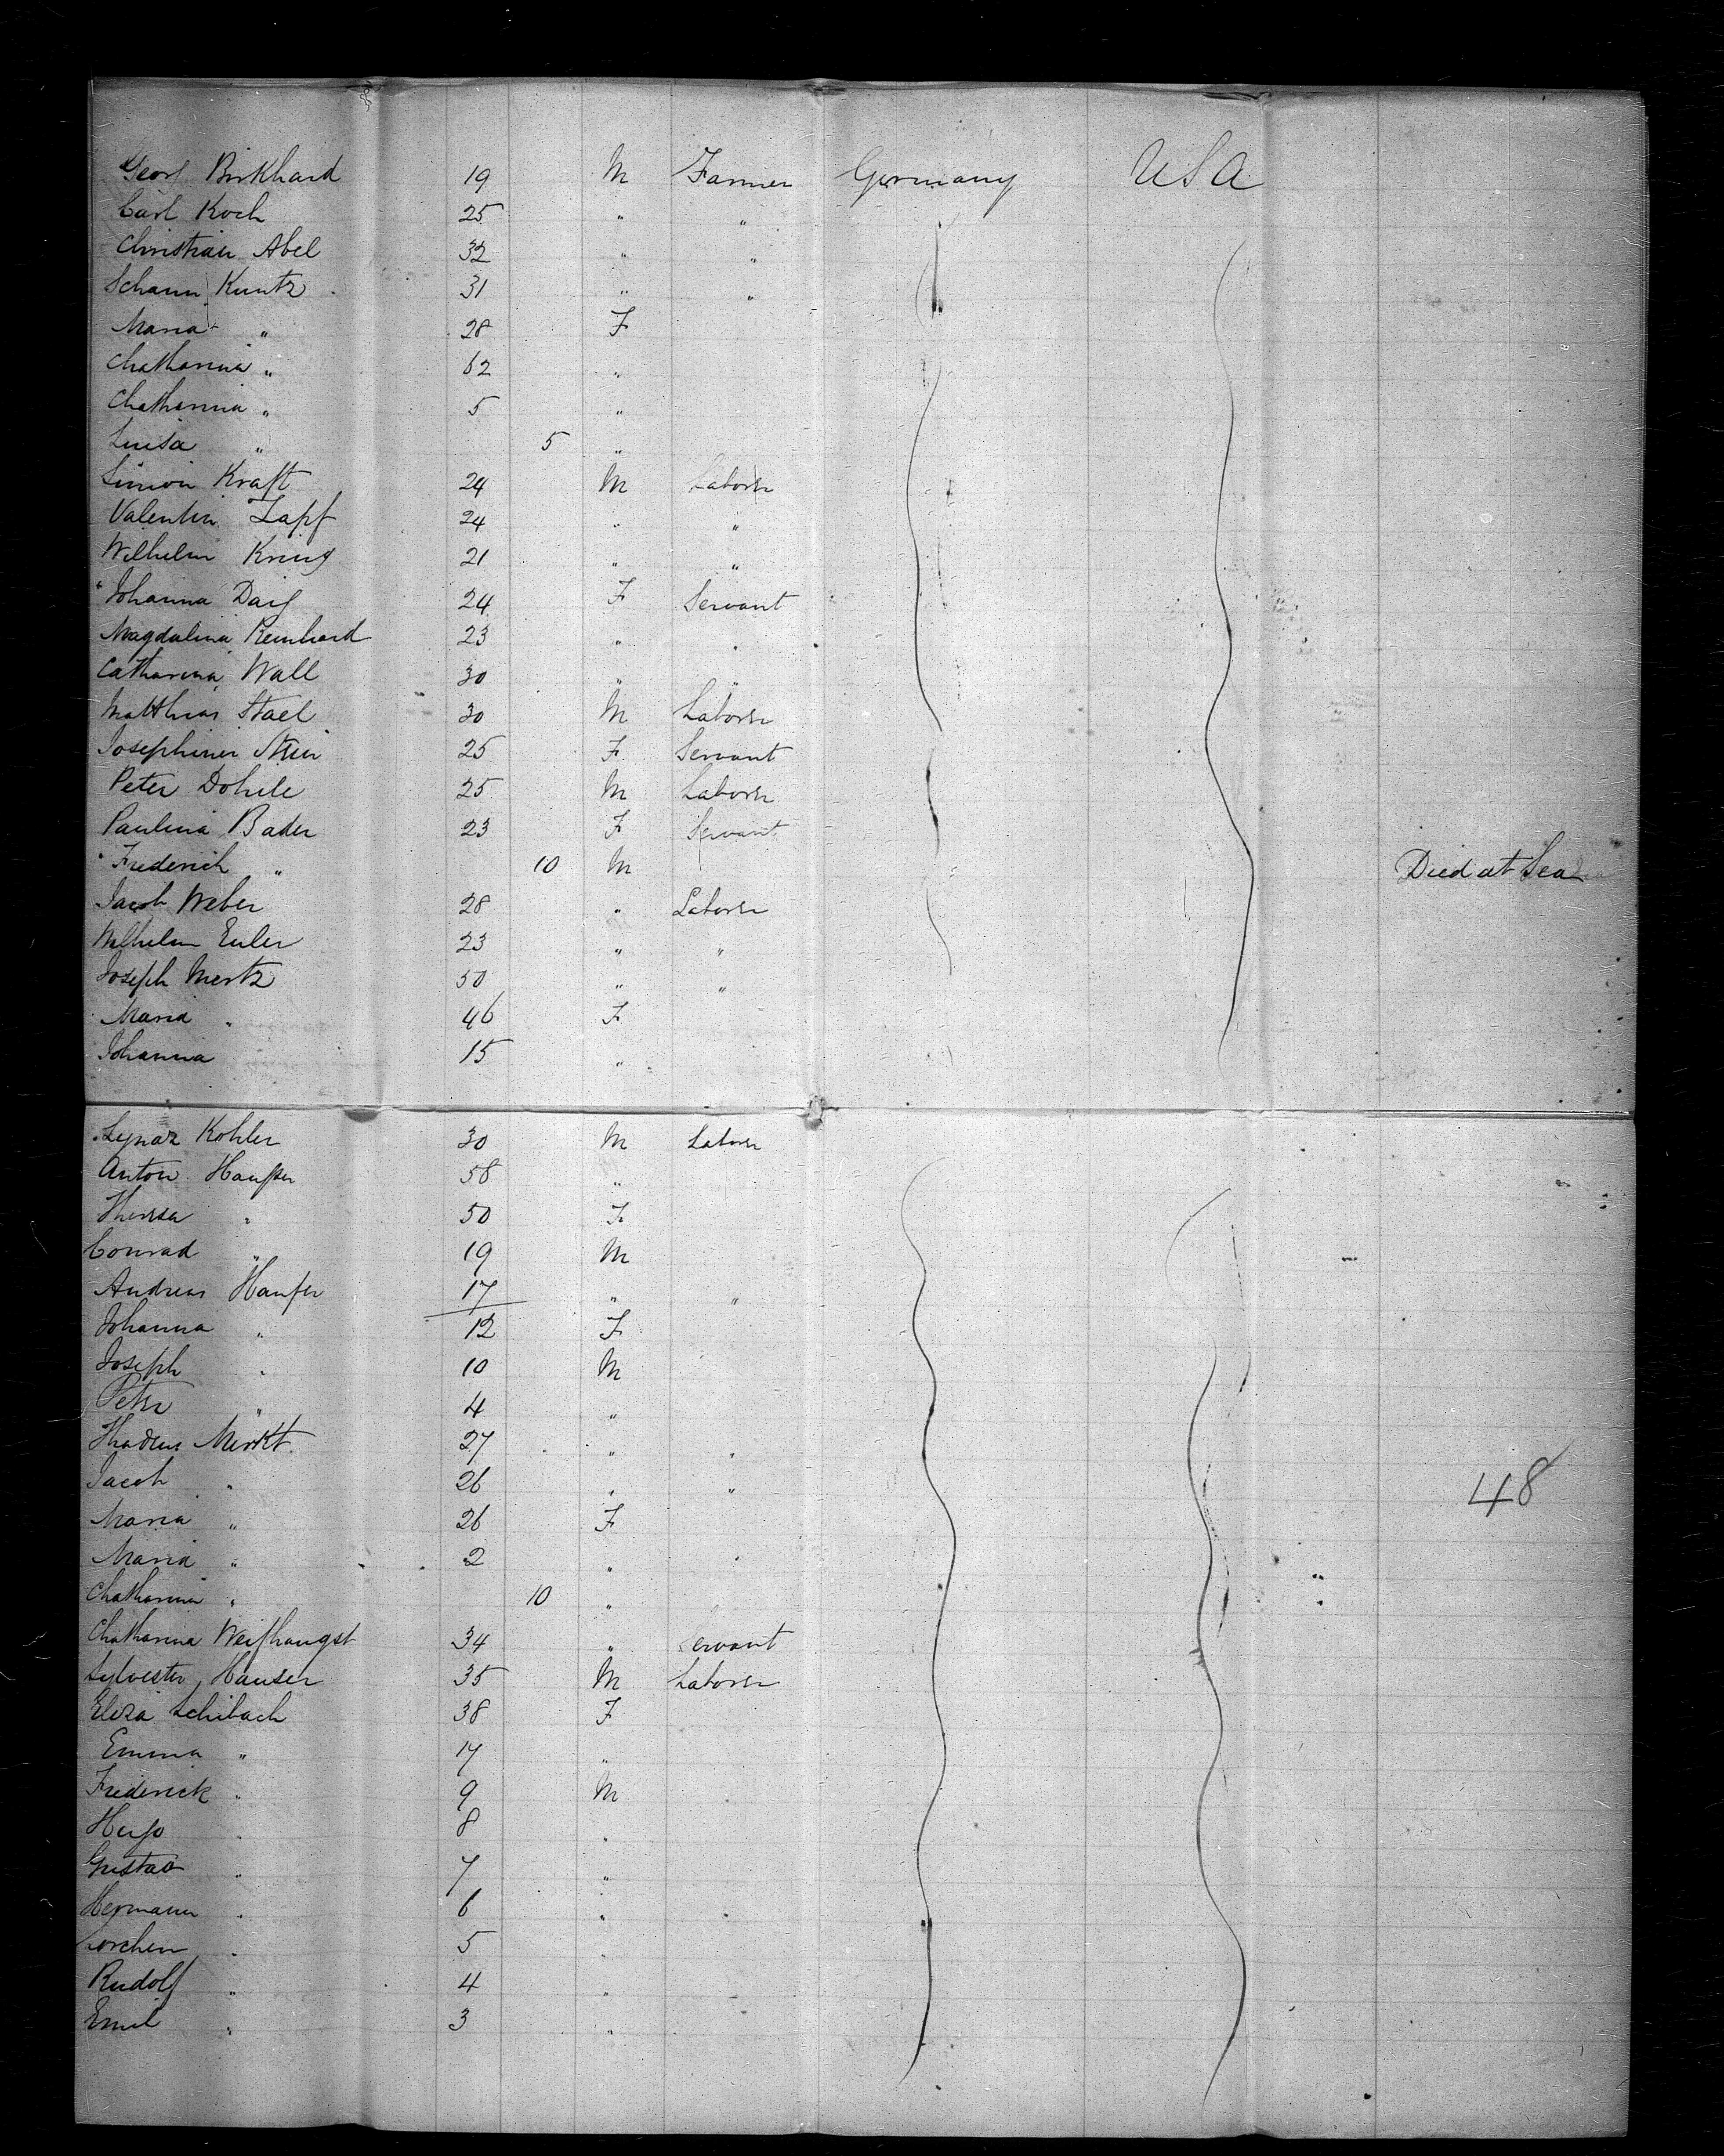 Georg Birkhard 19 M Farmer Germany USA
Carl Koch 25 " "
Christian Abel 32 " "
Johann Kuntz 31 " "
Maria " 28 F
Chatharina " 62 "
Chatharina " 5 "
Luisa " 5 "
Simon Kraft 24 M Laborer
Valentin Zapf 24 " "
Wilhelm Krug 21 " "
Johanna Daig 24 F Servant
Magdalina Reinhard 23 " "
Catharina Wall 30 " "
Matthias Stael 30 M Laborer
Josephine 25 F Servant
Peter Dohle 25 M Laborer
Paulina Bader 23 F Servant
Frederich " 10 M Died at Sea
Jacob Weber 28 " Laborer
Wilhelm Euler 23 " "
Joseph Mertz 50 " "
Maria " 46 F
Johanna 15 "
Kohler 30 M Laborer
Anton Haufer 58 "
Theresa " 50 F
Conrad " 19 M
Andreas Haufer 17 " "
Johanna " 12 F
Joseph " 10 M
Peter " 4 "
Thadeus Merkt 27 " "
Jacob " 26 " "
Maria " 26 F
Maria " 2 " "
Chatharina " 10 "
Chatharina Weishaugst 34 " Servant
Sylvester Hauser 35 M Laborer
Eliza Schibach 38 F
Emma " 17 "
Frederick " 9 M
Hugo " 8 "
Gustav " 7 "
Hermann " 6 "
Lorchen " 5 "
Rudolf " 4 "
Emil " 3 "
48